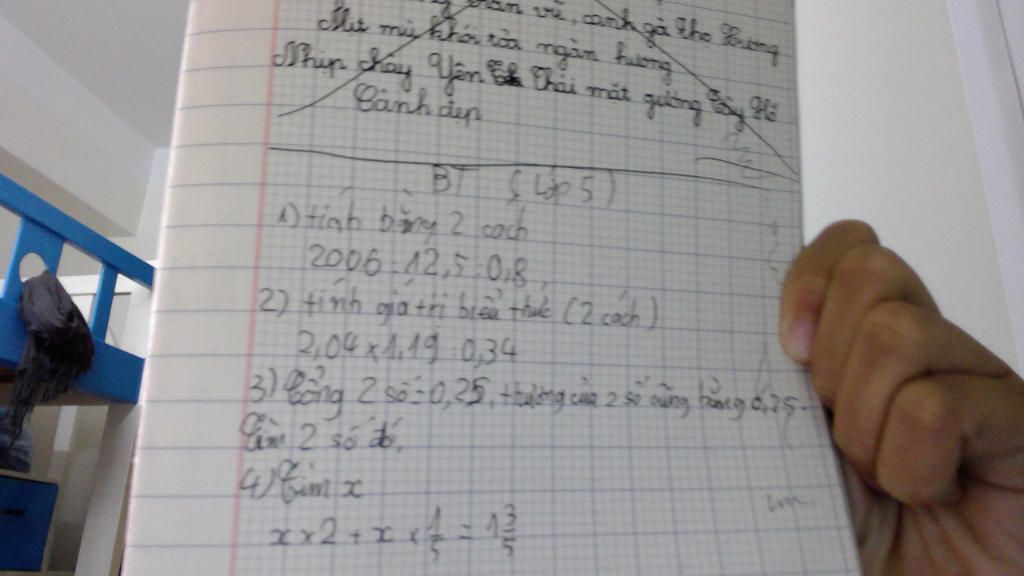 vũ, canh gà thọ Xương
Mịt mù khói tỏa ngàn hương
Nhịp chày Yên Thái mặt gương Tây Hồ
Cảnh đẹp
BT (Lớp 5)
1) tính bằng 2 cách
2006 : 12,5 : 0,8
2) tính giá trị biểu thức (2 cách)
2,04 x 1,19 : 0,34
3) Tổng 2 số = 0,25, thương của 2 số cũng bằng 0,25.
Tìm 2 số đó.
4) Tìm x
x x 2 + x x 1/5 = 1 3/5